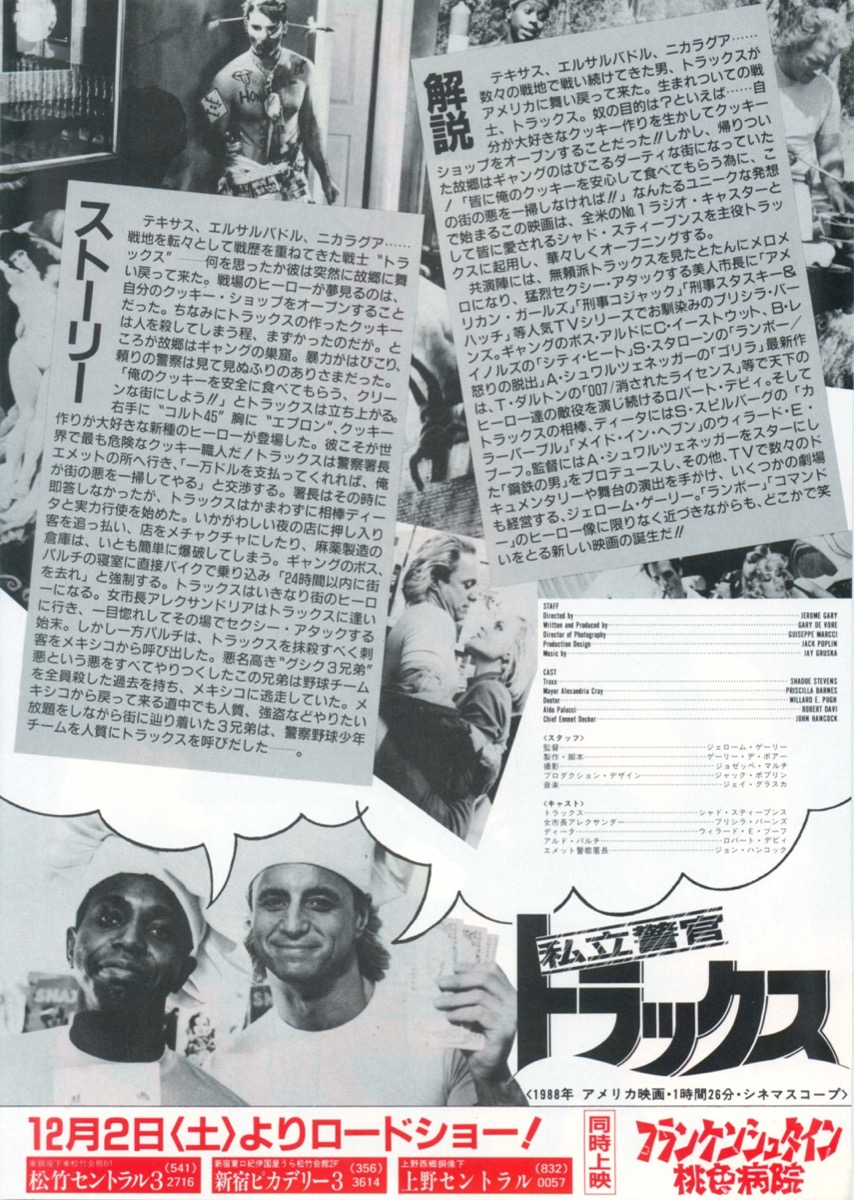 解説
テキサス、エルサルバドル、ニカラグア……
数々の戦地で戦い続けてきた男、トラックスが
アメリカに舞い戻って来た。生まれついての戦
士、トラックス。奴の目的は?といえば……自
分が大好きなクッキー作りを生かしてクッキー
ショップをオープンすることだった!!しかし、帰りつい
た故郷はギャングのはびこるダーティな街になっていた
!「皆に俺のクッキーを安心して食べてもらう為に、こ
の街の悪を一掃しなければ!!」なんたるユニークな発想
で始まるこの映画は、全米のNo.1ラジオ・キャスターと
して皆に愛されるシャド・スティーブンスを主役トラッ
クスに起用し、華々しくオープニングする。
共演陣には、無頼派トラックスを見たとたんにメロメ
ロになり、猛烈セクシー・アタックする美人市長に「アメ
リカン・ガールズ」「刑事コジャック」「刑事スタスキー&
ハッチ」等人気TVシリーズでお馴染みのプリシラ・バー
ンズ。ギャングのボス・アルドにC・イーストウット、B・レ
イノルズの「シティ・ヒート」、S・スタローンの「ランボー/
怒りの脱出」A・シュワルツェネッガーの「ゴリラ」最新作
は、T・ダルトンの「007/消されたライセンス」等で天下の
ヒーロー達の敵役を演じ続けるロバート・デビィ。そして
トラックスの相棒、ディータにはS・スピルバーグの「カ
ラーパープル」「メイド・イン・ヘブン」のウィラード・E・
プーフ。監督にはA・シュワルツェネッガーをスターにし
た「鋼鉄の男」をプロデュースし、その他、TVで数々のド
キュメンタリーや舞台の演出を手がけ、いくつかの劇場
も経営する、ジェローム・ゲーリー。「ランボー」「コマンド
ー」のヒーロー像に限りなく近づきながらも、どこかで笑
いをとる新しい映画の誕生だ!!
ストーリー
テキサス、エルサルバドル、ニカラグア……
戦地を転々として戦歴を重ねてきた戦士“トラ
ックス”――何を思ったか彼は突然に故郷に舞
い戻って来た。戦場のヒーローが夢見るのは、
自分のクッキー・ショップをオープンすること
だった。ちなみにトラックスの作ったクッキー
は人を殺してしまう程、まずかったのだが。と
ころが故郷はギャングの巣窟。暴力がはびこり、
頼りの警察は見て見ぬふりのありさまだった。
「俺のクッキーを安全に食べてもらう、クリー
ンな街にしよう!!」とトラックスは立ち上がる。
右手に“コルト45”胸に“エプロン”、クッキー
作りが大好きな新種のヒーローが登場した。彼こそが世
界で最も危険なクッキー職人だ!トラックスは警察署長
エメットの所へ行き、「一万ドルを支払ってくれれば、俺
が街の悪を一掃してやる」と交渉する。署長はその時に
即答しなかったが、トラックスはかまわずに相棒ディー
タと実力行使を始めた。いかがわしい夜の店に押し入り
客を追っ払い、店をメチャクチャにしたり、麻薬製造の
倉庫は、いとも簡単に爆破してしまう。ギャングのボス、
パルチの寝室に直接バイクで乗り込み「24時間以内に街
を去れ」と強制する。トラックスはいきなり街のヒーロ
ーになる。女市長アレクサンドリアはトラックスに逢い
に行き、一目惚れしてその場でセクシー・アタックする
始末。しかし一方パルチは、トラックスを抹殺すべく刺
客をメキシコから呼び出した。悪名高き“グシク3兄弟”
悪という悪をすべてやりつくしたこの兄弟は野球チーム
を全員殺した過去を持ち、メキシコに逃走していた。メ
キシコから戻って来る道中でも人質、強盗などやりたい
放題をしながら街に辿り着いた3兄弟は、警察野球少年
チームを人質にトラックスを呼びだした――。
STAFF
Directed by JEROME GARY
Written and Produced by GARY DE VORE
Director of Photography GUISEPPE MARCCI
Production Design JACK POPLIN
Music by JAY GRUSKA
CAST
Traxx SHADOE STEVENS
Mayor Alexandria Cray PRISCILLA BARNES
Deeter WILLARD E. PUGH
Aldo Palucci ROBERT DAVI
Chief Emmet Decker JOHN HANCOCK
〈スタッフ〉
監督 ジェローム・ゲーリー
製作・脚本 ゲーリー・デ・ボアー
撮影 ジョゼッペ・マルチ
プロダクション・デザイン ジャック・ポプリン
音楽 ジェイ・グラスカ
〈キャスト〉
トラックス シャド・スティーブンス
女市長アレクサンダー プリシラ・バーンズ
ディータ ウィラード・E・プーフ
アルド・パルチ ロバート・デビィ
エメット警察署長 ジョン・ハンコック
私立警官
トラックス
〈1988年 アメリカ映画・1時間26分・シネマスコープ〉
12月2日〈土〉よりロードショー!
東銀座下車松竹会館B1
松竹セントラル3 (541) 2716
新宿東口紀伊国屋うら松竹会館2F
新宿ピカデリー3 (356) 3614
上野西郷銅像下
上野セントラル (832) 0057
同時上映
フランケンシュタイン
桃色病院